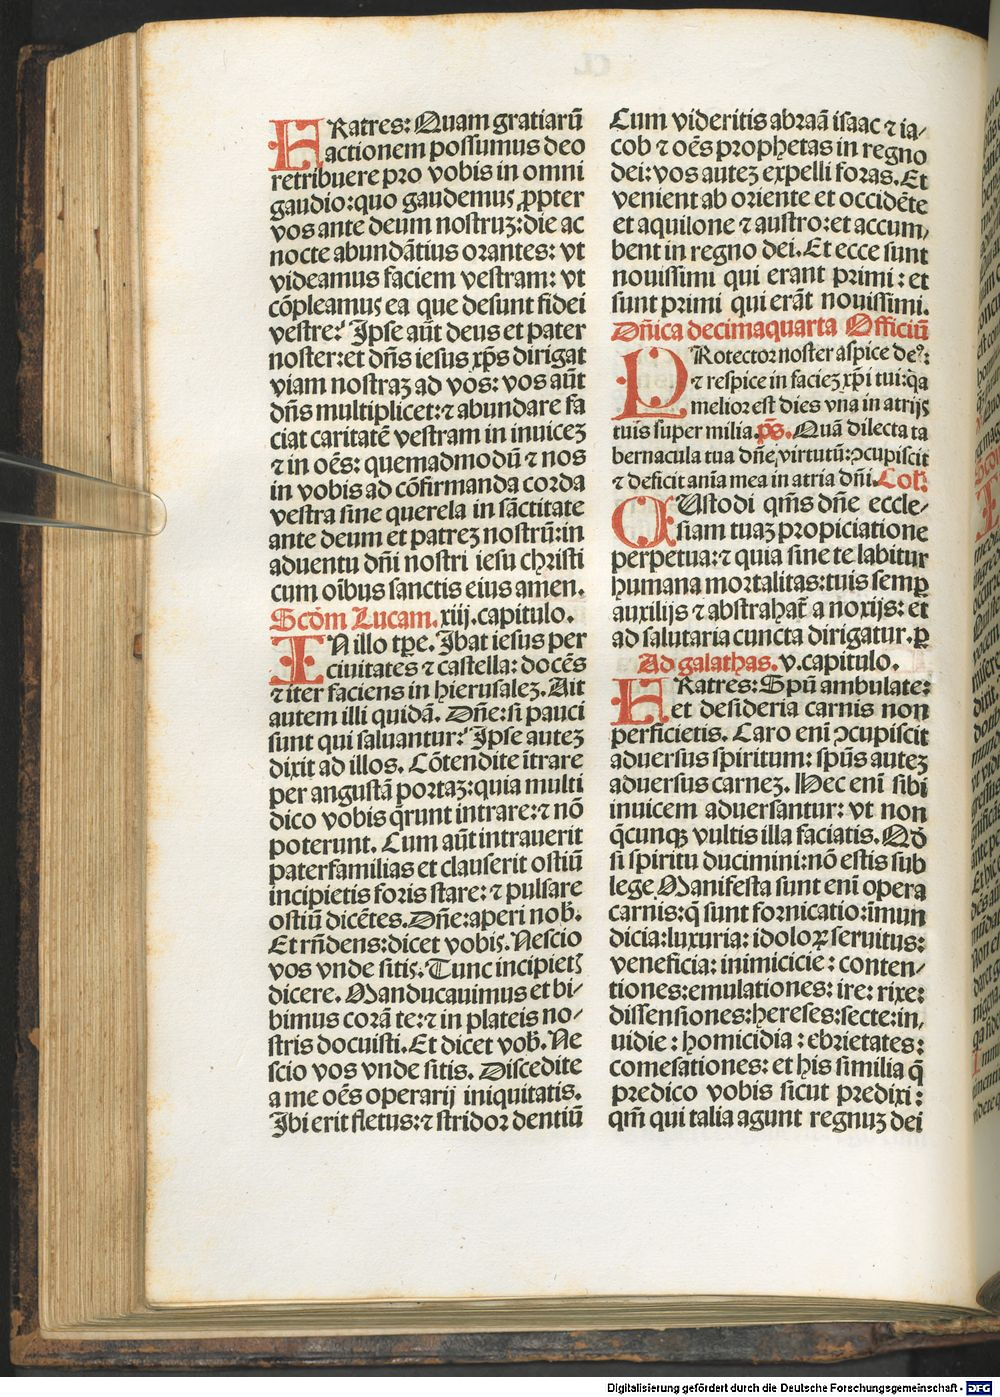 FRatres: Quam gratiarū
actionem possumus deo
retribuere pro vobis in omni
gaudio: quo gaudemus ꝓpter
vos ante deum nostruꝫ: die ac
nocte abundātius orantes: vt
videamus faciem vestram: vt
cōpleamus ea que desunt fidei
vestre: Ipse aūt deus et pater
noster: et dn̄s iesus xp̄s dirigat
viam nostraꝫ ad vos: vos aūt
dn̄s multiplicet: ⁊ abundare fa
ciat caritatē vestram in inuiceꝫ
⁊ in oēs: quemadmodū ⁊ nos
in vobis ad cōfirmanda corda
vestra sine querela in sāctitate
ante deum et patreꝫ nostrū: in
aduentu dn̄i nostri iesu christi
cum oībus sanctis eius amen.
Scd̄m Lucam. xiij. capitulo.
IN illo tꝑe. Ibat iesus per
ciuitates ⁊ castella: docēs
⁊ iter faciens in hierusaleꝫ. Ait
autem illi quidā. Dn̄e: si pauci
sunt qui saluantur: Ipse auteꝫ
dixit ad illos. Cōtendite ītrare
per angustā portaꝫ: quia multi
dico vobis q̄runt intrare: ⁊ nō
poterunt. Cum aūt intrauerit
paterfamilias et clauserit ostiū
incipietis foris stare: ⁊ pulsare
ostiū dicētes. Dn̄e: aperi nob̄.
Et rn̄dens: dicet vobis. Nescio
vos vnde sitis. Tunc incipietꝭ
dicere. Manducauimus et bi⸗
bimus corā te: ⁊ in plateis no⸗
stris docuisti. Et dicet vob̄. Ne
scio vos vnde sitis. Discedite
a me oēs operarij iniquitatis.
Ibi erit fletus: ⁊ stridor dentiū
Cum videritis abraā isaac ⁊ ia⸗
cob ⁊ oēs prophetas in regno
dei: vos auteꝫ expelli foras. Et
venient ab oriente et occidēte
et aquilone ⁊ austro: et accum⸗
bent in regno dei. Et ecce sunt
nouissimi qui erant primi: et
sunt primi qui erāt nouissimi.
Dn̄ica decimaquarta Officiū
PRotector noster aspice deꝰ:
⁊ respice in facieꝫ xp̄i tui: qa
melior est dies vna in atrijs
tuis super milia. ps̄. Quā dilecta ta
bernacula tua dn̄e virtutū: ꝯcupiscit
⁊ deficit anīa mea in atria dn̄i. Coll̄.
CUstodi qm̄s dn̄e eccle⸗
siam tuaꝫ propiciatione
perpetua: ⁊ quia sine te labitur
humana mortalitas: tuis semꝑ
auxilijs ⁊ abstrahat̄ a noxijs: et
ad salutaria cuncta dirigatur. ꝑ
Ad galathas. v. capitulo.
FRatres: Spū ambulate:
et desideria carnis non
perficietis. Caro enī ꝯcupiscit
aduersus spiritum: spūs auteꝫ
aduersus carneꝫ. Hec enī sibi
inuicem aduersantur: vt non
q̄cunqꝫ vultis illa faciatis. Qd̄
si spiritu ducimini: nō estis sub
lege Manifesta sunt enī opera
carnis: q̄ sunt fornicatio: īmun
dicia: luxuria: idoloꝝ seruitus:
veneficia: inimicicie: conten⸗
tiones: emulationes: ire: rixe:
dissensiones: hereses: secte: in⸗
uidie: homicidia: ebrietates:
comesationes: et his similia q̄
predico vobis sicut predixi:
qm̄ qui talia agunt regnuꝫ dei
Digitalisierung gefördert durch die Deutsche Forschungsgemeinschaft - DFG